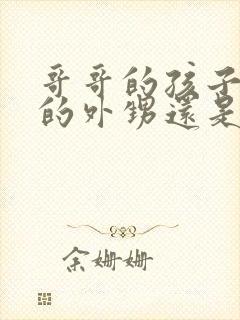 哥哥的孩子
的外甥還是
余姗姗